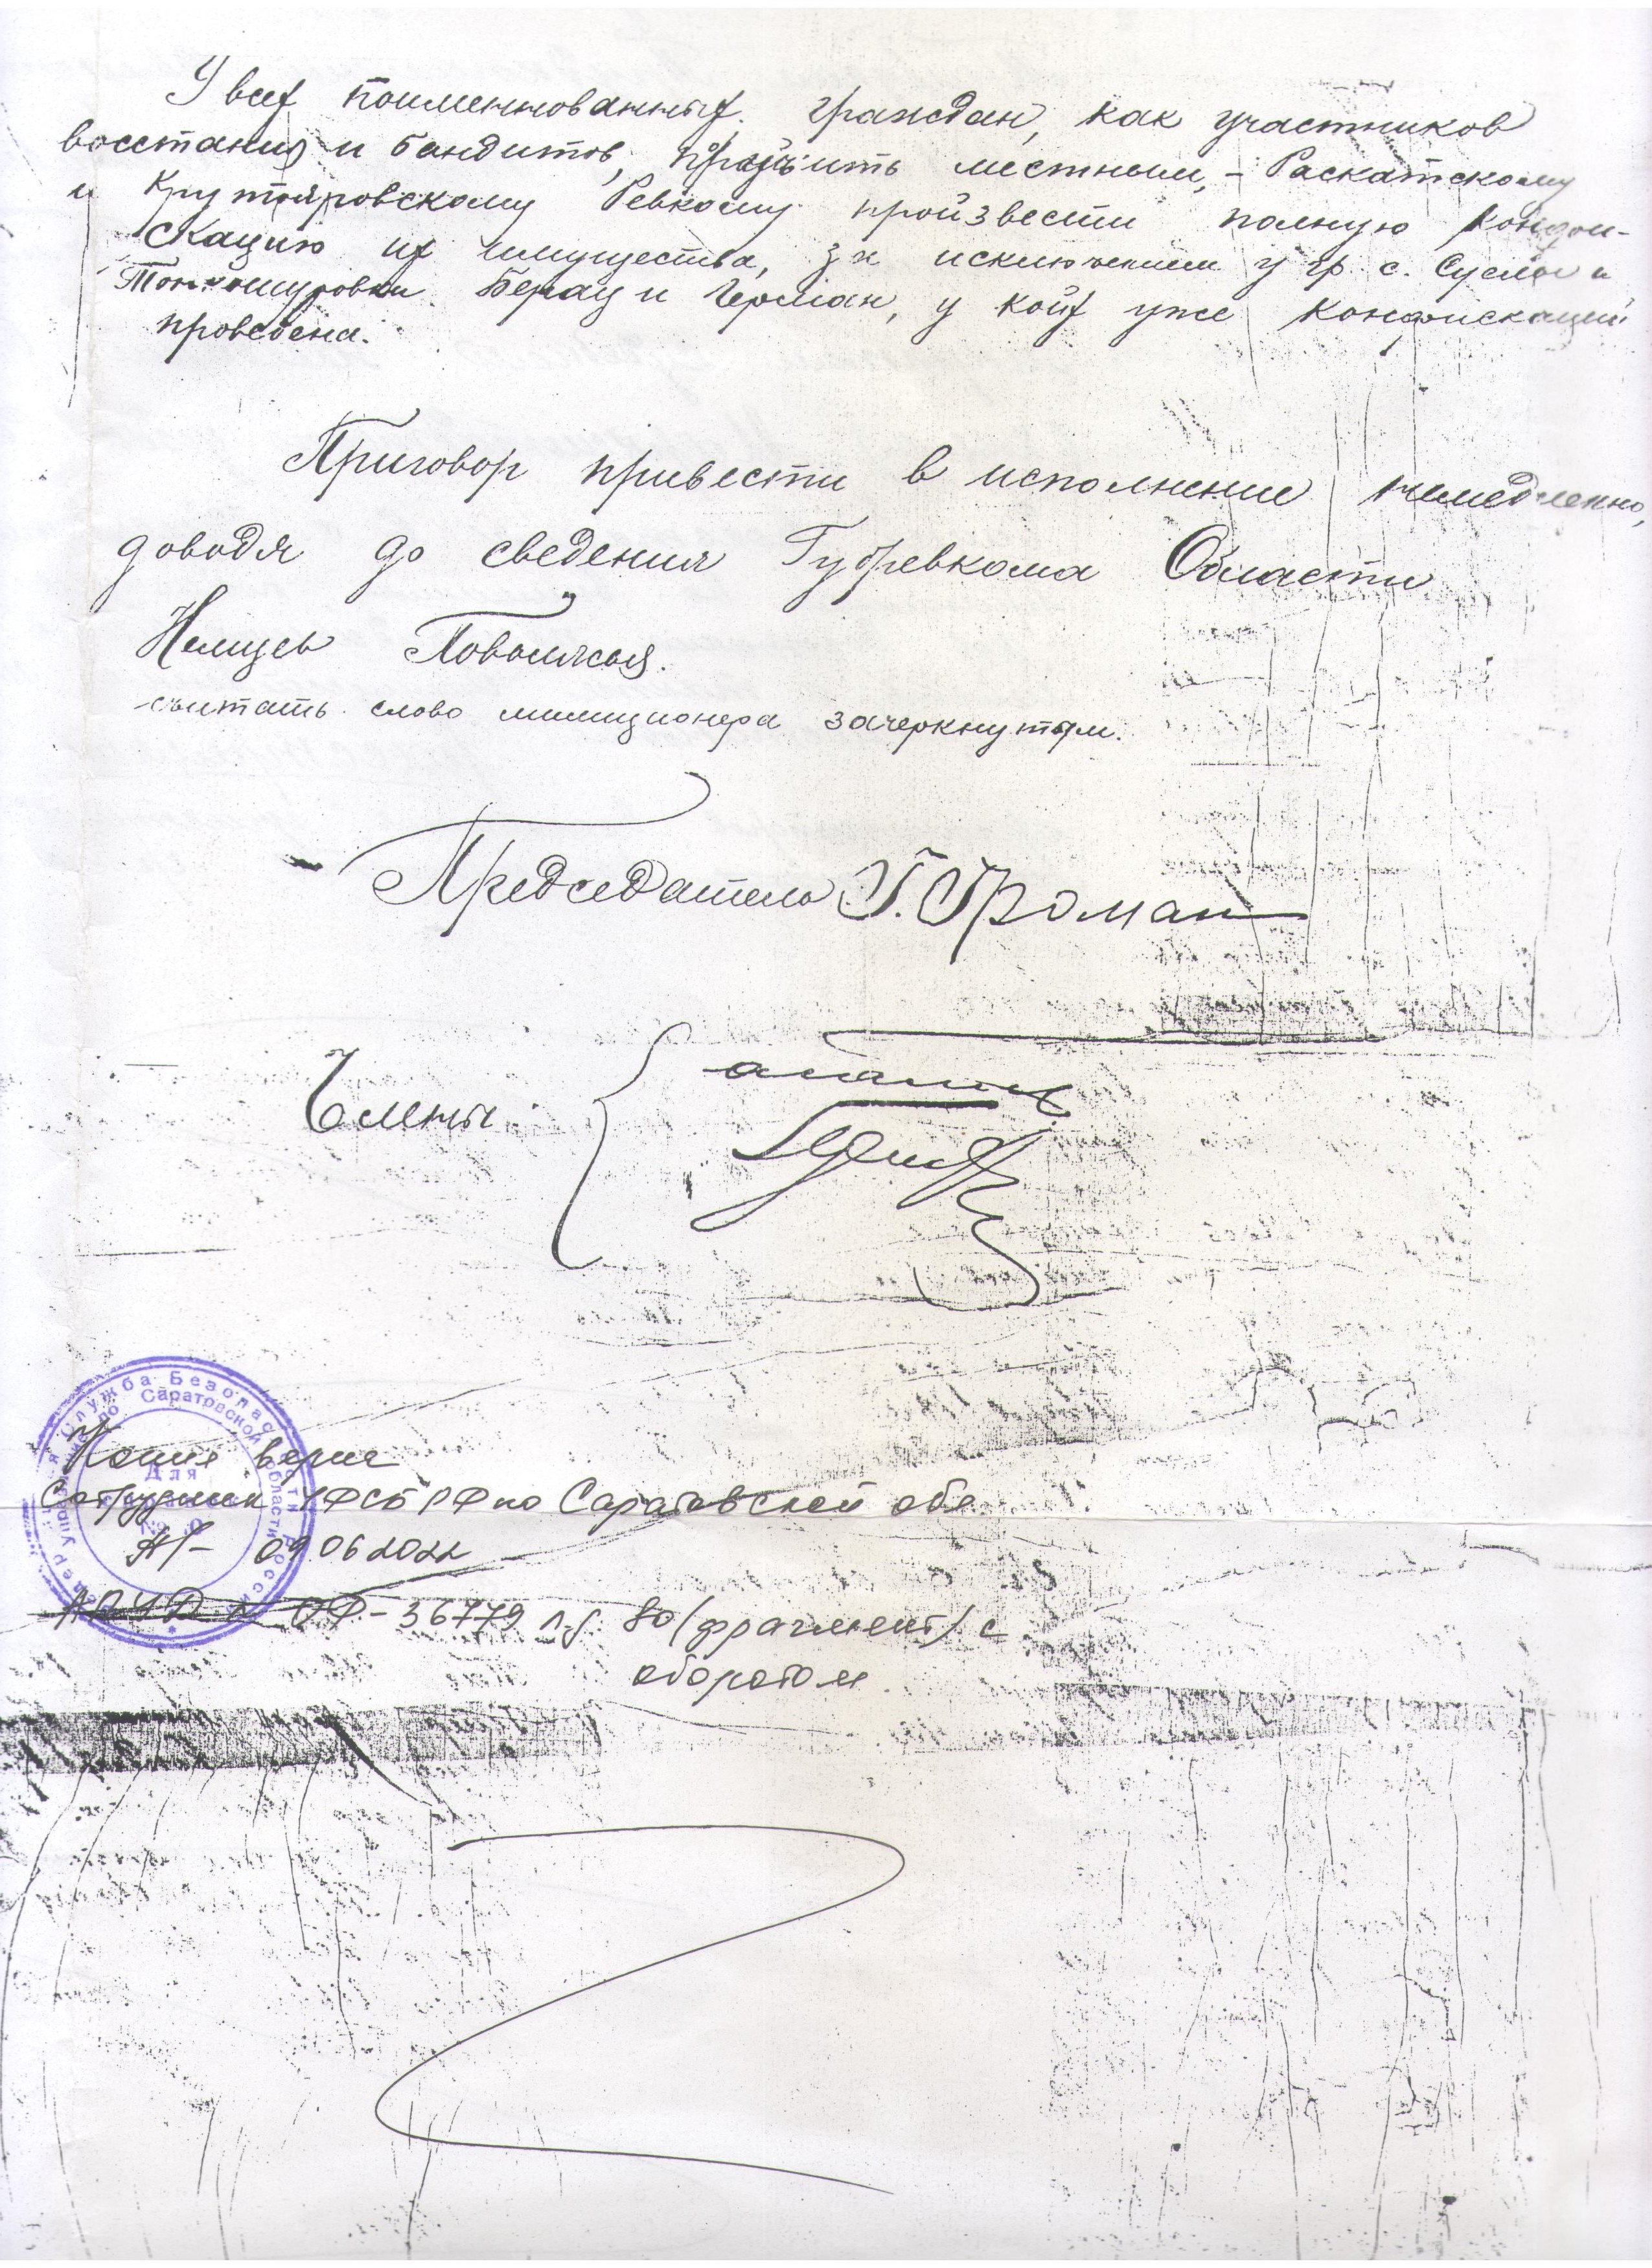 У всех поименнованных граждан, как участников
восстания и бандитов, поручить местным, - Раскатскому
и Крутояровскому Ревкому произвести полную конфи-
скацию их имущества, за исключением у гр. с. Суслы и
Тонкошуровки и Герман, у коих уже конфискация
проведена.
Приговор привести в исполнение немедленно,
доводя до сведения Губревкома Области
Немцев Поволжья.
считать слово милиционера зачеркнутым.
Председатель Г. Громан
Члены:
Служба Безопасности России
по Саратовской области
Для
Копия верна
Сотрудник УФСБ РФ по Саратовской обл.
09.06.2022
ОФ-36779 л.д. 80 (фрагмент) с
оборотом.